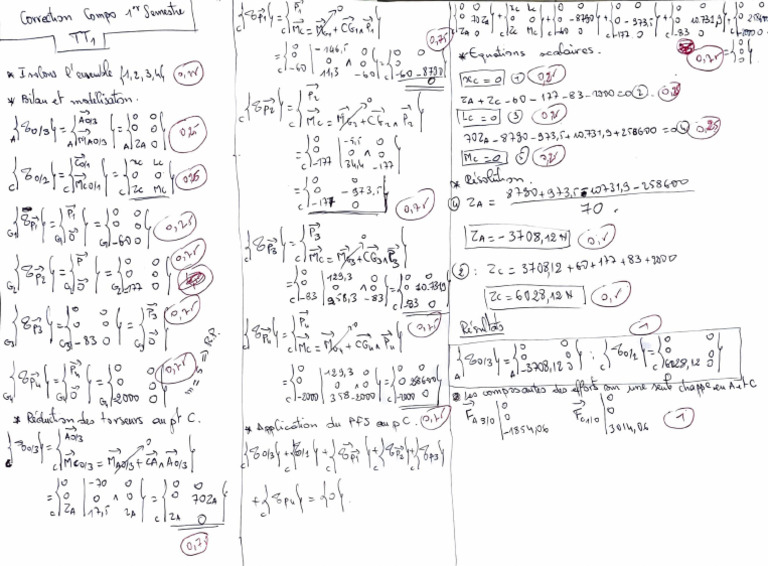 Correction Compo 1er Semestre
TT1
* Isolons l'ensemble {1,2,3,4} 0,25
* Bilan et modélisation.
A{𝒯0/3} = A{A0/3 MA0/3} = A{0 0 / 0 0 / ZA 0} 0,25
C{𝒯0/2} = {C0/1 MC0/1} = C{xc Lc / 0 0 / Zc Mc} 0,25
G1{𝒯P1} = G1{P1 0} = G1{0 0 / 0 0 / -60 0} 0,25
G2{𝒯P2} = G2{P 0} = G2{0 0 / 0 0 / -177 0} 0,25
G3{𝒯P3} = G3{0 0 / 0 0 / -83 0} = {P3 0} 0,25
G4{𝒯P4} = G4{P4 0} = G4{0 0 / 0 0 / -2000 0} 0,25
* Réduction des torseurs au pt C.
C{𝒯0/3} = {A0/3 MC0/3 = MA0/3 + CA ∧ A0/3}
= C{0 / 0 / ZA | -70 0 / 0 ∧ 0 / 17,5 ZA} = C{0 0 / 0 70ZA / ZA 0}
0,25
C{𝒯P1} = {P1 MC = MG1 + CG1 ∧ P1} 0,25
= C{0 / 0 / -60 | -146,5 0 / 0 ∧ 0 / 11,3 -60} = C{0 0 / 0 -8790 / -60 0}
C{𝒯P2} = {P2 MC = MG2 + CG2 ∧ P2}
= C{0 / 0 / -177 | -5,5 0 / 0 ∧ 0 / 34,4 -177}
= C{0 0 / 0 -973,5 / -177 0} 0,25
C{𝒯P3} = {P3 MC = MG3 + CG3 ∧ P3}
= C{0 / 0 / -83 | 129,3 0 / 0 ∧ 0 / 958,3 -83} = C{0 0 / 0 10.731,9 / -83 0}
C{𝒯P4} = {P4 MC = MG4 + CG4 ∧ P4} 0,25
= C{0 / 0 / -2000 | 129,3 0 / 0 ∧ 0 / 358 -2000} = C{0 0 / 0 258600 / -2000 0}
* Application du PFS au p C. 0,25
C{𝒯0/3} + C{𝒯0/1} + C{𝒯P1} + C{𝒯P2} + C{𝒯P3}
+ C{𝒯P4} = {0}.
C{0 0 / 0 70ZA / ZA 0} + C{xc Lc / 0 0 / Zc Mc} + C{0 0 / 0 -8790 / -60 0} + C{0 0 / 0 -973,5 / -177 0} + C{0 0 / 0 10.731,9 / -83 0} + {0 0 / 0
* Equations scalaires. 0,25 = {0 0 / 0 0 / 0 0}
xc = 0 (1) 0,25
ZA + Zc - 60 - 177 - 83 - 2000 = 0 (2). 0,25
Lc = 0 (3) 0,25
70ZA - 8790 - 973,5 + 10.731,9 + 258600 = 0 (4) 0,25
Mc = 0 (5) 0,25
* Résolution.
(4) ZA = 8790 + 973,5 - 10731,9 - 258600
70
ZA = -3708,12 N 0,5
(2) : Zc = 3708,12 + 60 + 177 + 83 + 2000
Zc = 6028,12 N 0,5
Résultats 1
A{𝒯0/3} = A{0 0 / 0 0 / -3708,12 0} ; C{𝒯0/2} = C{0 0 / 0 0 / 6028,12 0}
* Les composantes des efforts sur une seule chappe en A et C
FA3/0 | 0 / 0 / -1854,06 FC1/0 | 0 / 0 / 3014,06 1